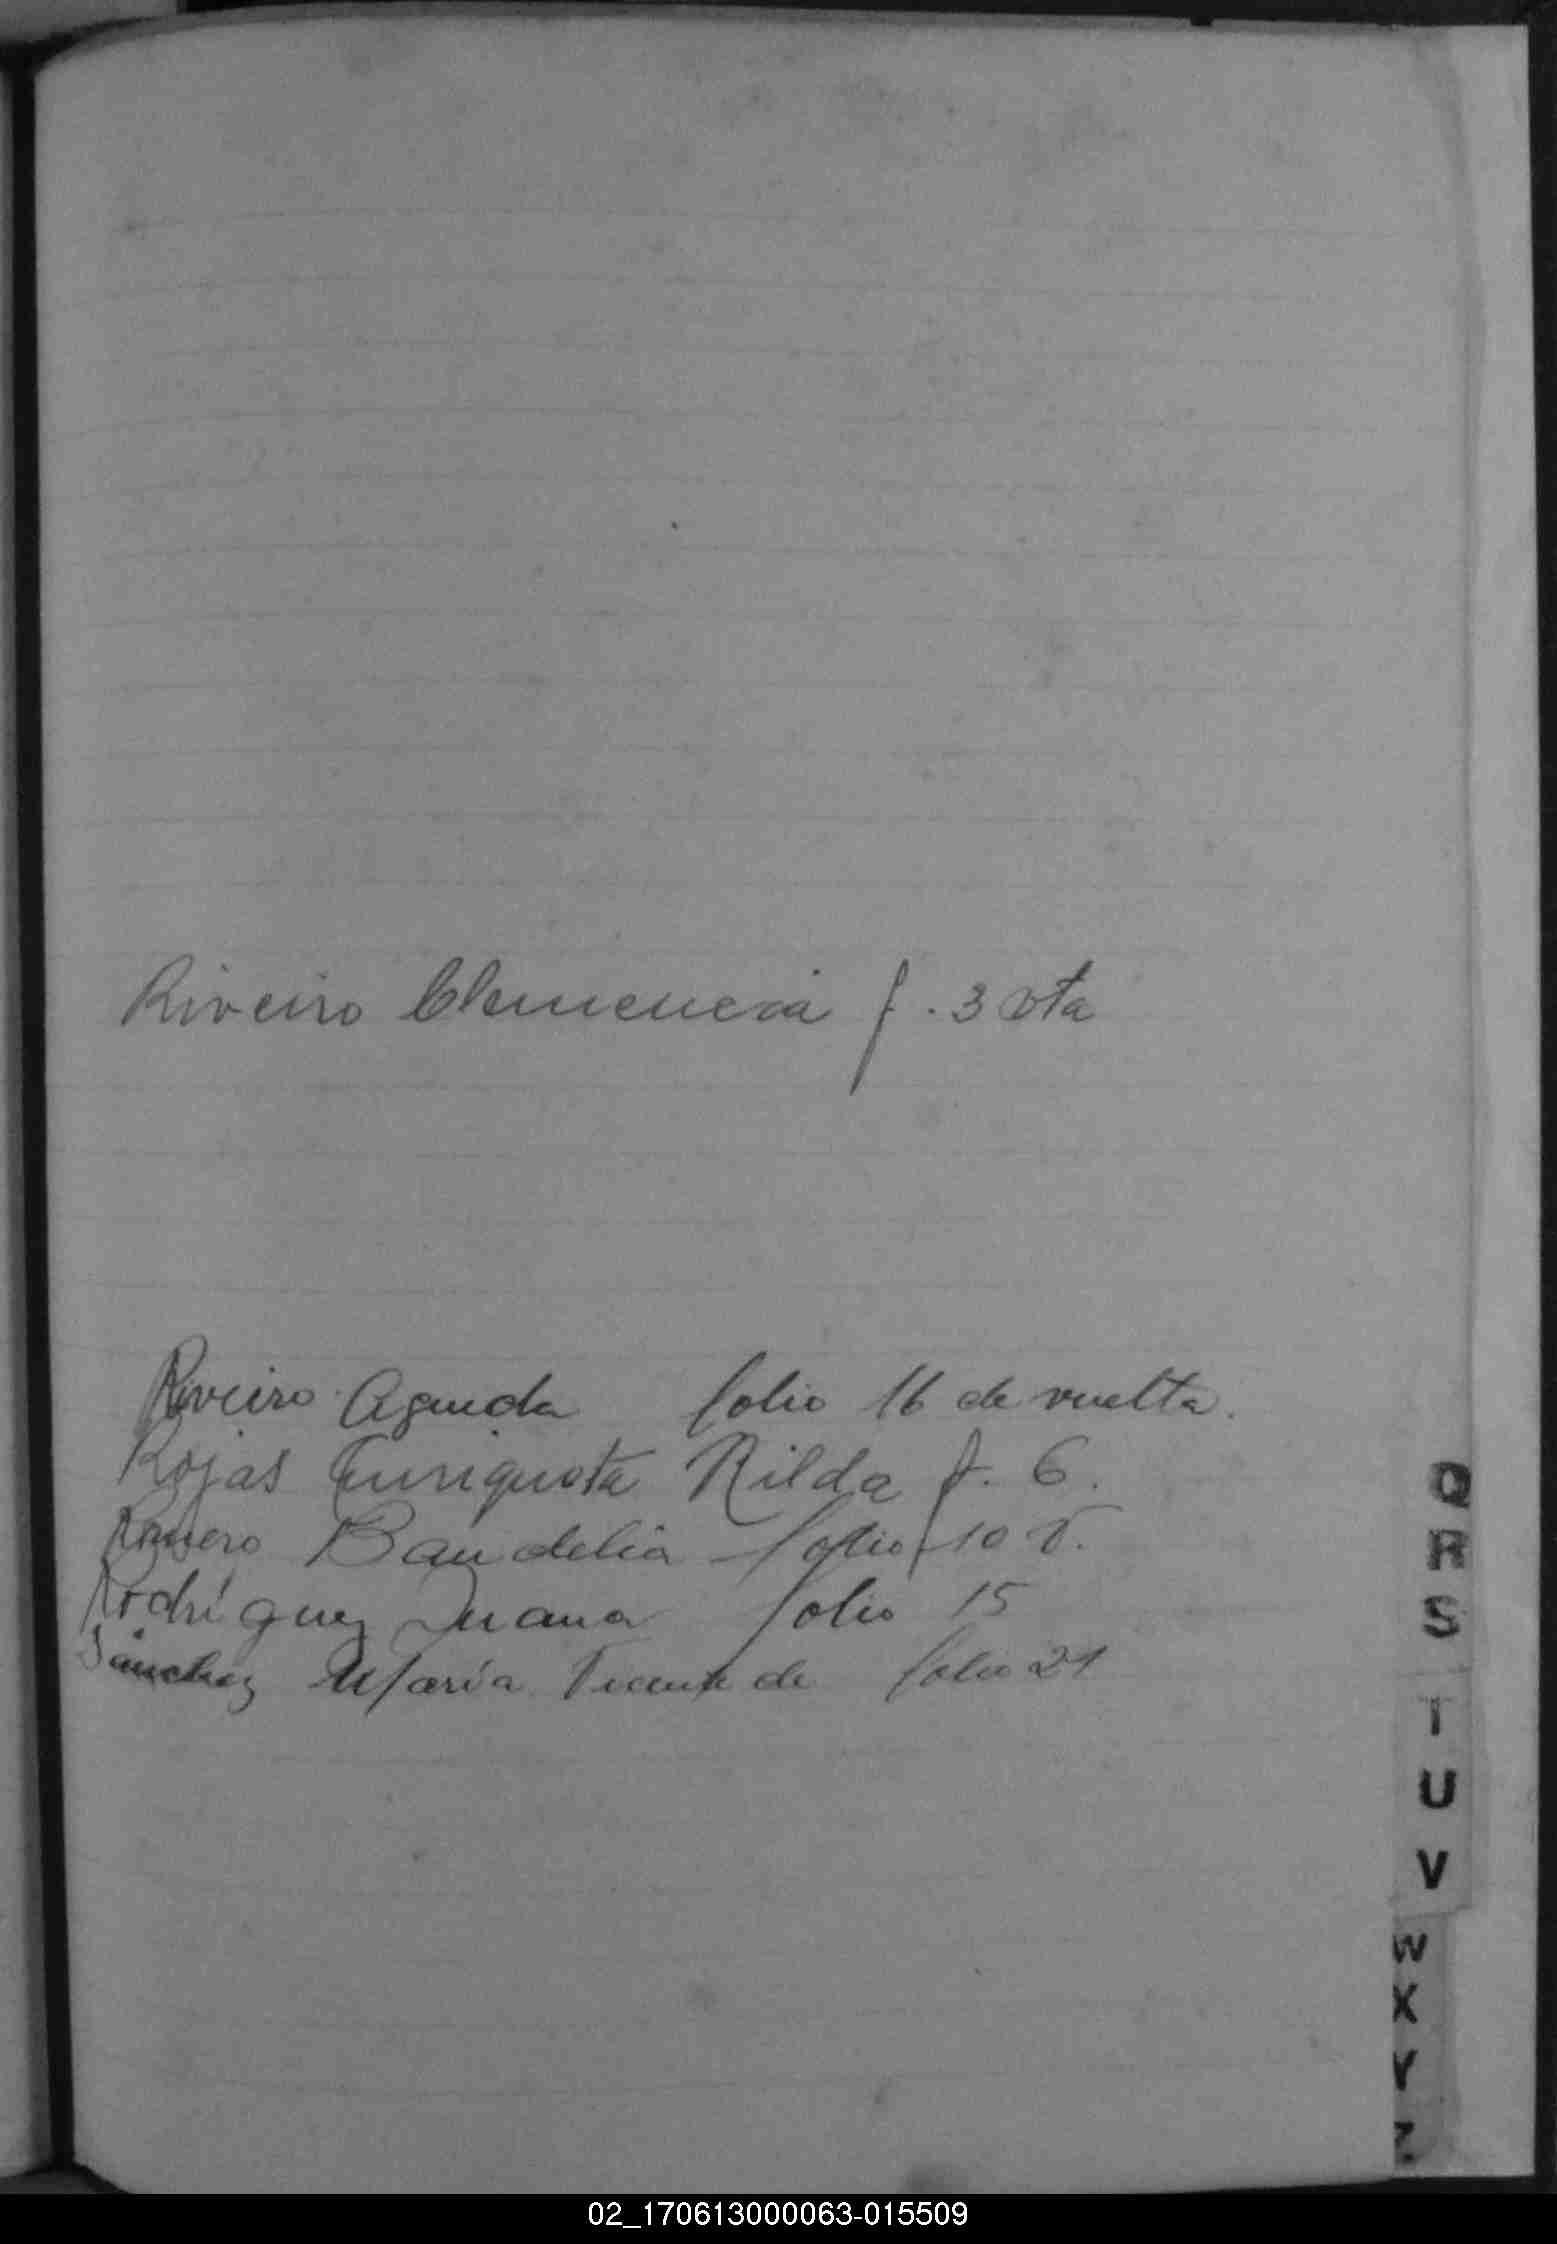 Riveiro Clemencia f. 3 vta
Riveiro Agueda folio 16 de vuelta.
Rojas Enriqueta Nilda f. 6.
Romero Baudelia folio 10 v.
Rodríguez Juana folio 15
Sánchez María Vicenta de folio 21
Q
R
S
T
U
V
W
X
Y
Z
02_170613000063-015509